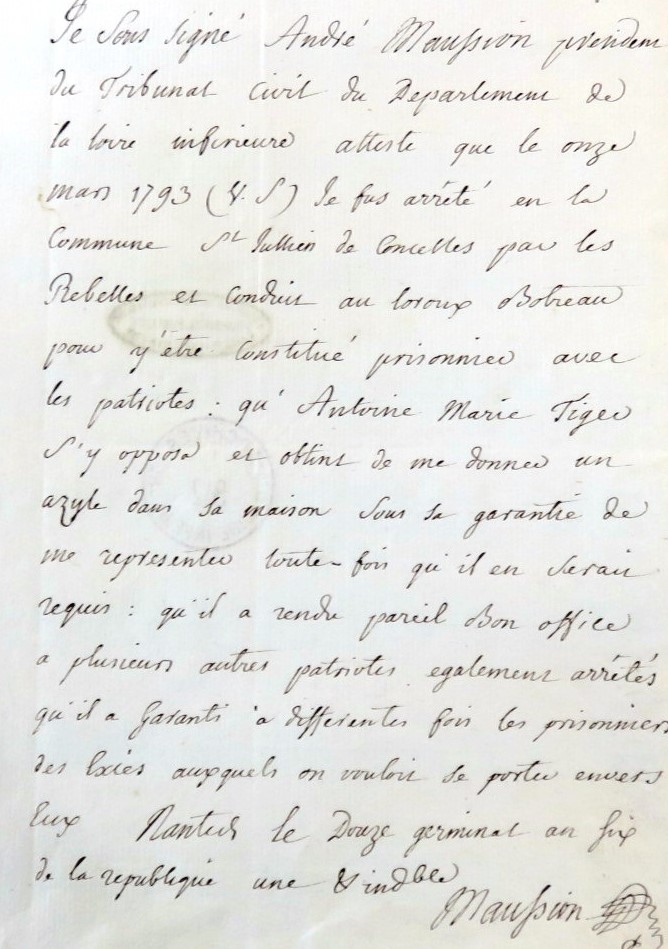 Je Sous Signé André Maussion president
du Tribunal Civil du Departement de
la loire inferieure atteste que le onze
mars 1793 (V. S) Je fus arrêté en la
Commune St Jullien de Concelles par les
Rebelles et Conduit au loroux Botreau
pour y être Constitué prisonnier avec
les patriotes : qu' Antoine Marie Tiger
S'y opposa et obtint de me donner un
azyle dans sa maison sous sa garantie de
me representer toute-fois qu'il en serait
requis : qu'il a rendu pareil Bon office
a plusieurs autres patriotes egalement arrêtés
qu'il a Garanti à differentes fois les prisonniers
des Exies auxquels on vouloit se porter envers
Eux Nantes le Douze germinal an six
de la republique une & indble
Maussion